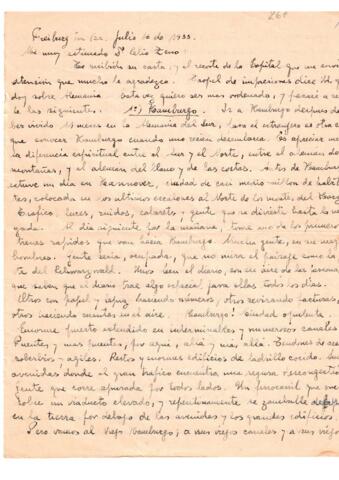 268
Freiburg in Br. Julio 10 de 1933.
Mi muy estimado Sr Celio Zeno:
He recibido su carta, y el recorte de la Capital que me
atención que mucho le agradezco. Papel de impresiones dice
doy sobre Alemania. Esta vez quiero ser mas ordenado, y pasaré a
le las siguiente. 1º) Hamburgo. Ir a Hamburgo despues de
ber vivido 11 meses en la Alemania del Sur, para el extranjero es otra
que conocer Hamburgo cuando uno recien desembarca. Es apreciar
la diferencia espiritual entre el Sur y el Norte, entre el aleman de
montañas, y el aleman del llano y de las costas. Antes de Hamburgo
estuve un dia en Hannover, ciudad de casi medio millon de habi
tes, colocada en las ultimas ocasiones al Norte de los montes del
Trafico, luces, ruidos, cabarets, gente que se divierte hasta la
gada. Al dia siguiente por la mañana, tomé uno de los primeros
trenes rapidos que van hacia Hamburgo. Mucha gente, en su
hombres. Gente seria, ocupada, que no mira el paisaje como la
te del Schwarzwald. Unos leen el diario, con un aire de las personas
que saben que el diario trae algo especial para ellas todos los dias.
Otros con papel y lapiz haciendo números, otros revisando facturas,
otros haciendo cuentas en el aire. Hamburgo! Ciudad opulenta.
Enorme puerto extendido en interminables y numerosos canales
Puentes, y mas puentes, por aqui, allá y más allá. Tendones de ace
soberbios y agiles. Rectos y enormes edificios de ladrillo cocido.
avenidas donde el gran trafico encuentra una segura descongestión
gente que corre apurada por todos lados. Un ferrocarril que
sobre un viaducto elevado, y repentinamente se zambulle
en la tierra por debajo de las avenidas y los grandes edificios
Pero vamos al viejo Hamburgo; a sus viejos canales y a sus viejo